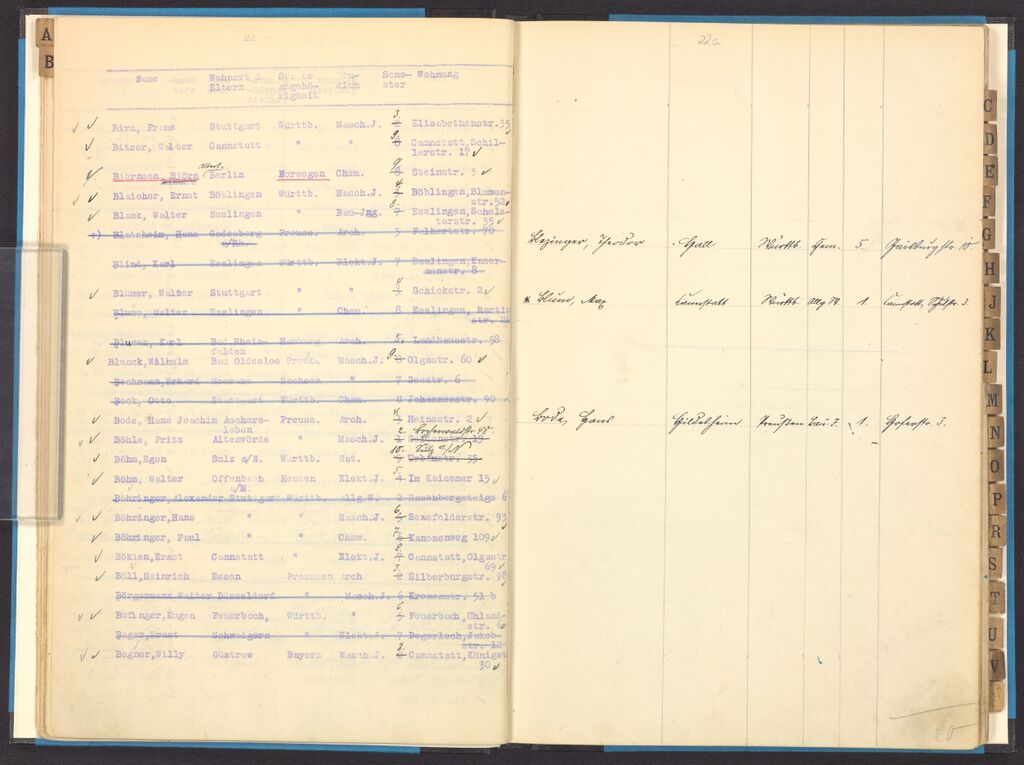 A
B
22
Name Wohnort d. Staats- Stu- Seme- Wohnung
Eltern angehö- dium ster
rigkeit
Birn, Franz Stuttgart Württb. Masch.J. 3. Elisabethenstr. 35
Bitzer, Walter Cannstatt " " 9. Cannstatt, Schil-
lerstr. 17
Albert
Björnson, Björn Berlin Norwegen Chem. 9. Steinstr. 3
Blaicher, Ernst Böblingen Württb. Masch.J. 4. Böblingen, Blumen-
str. 52
Blank, Walter Esslingen " Bau-Jng. 8. Esslingen, Schelz-
torstr. 35
+) Blatzheim, Hans Godesberg Preuss. Arch. 3 Falkertstr. 70
a/Rh.
Blind, Karl Esslingen Württb. Elekt.J. 7 Esslingen, Kaser-
nenstr. 8
Blümer, Walter Stuttgart " " Schickstr. 2
Blume, Walter Esslingen " Chem. 8 Esslingen, Martin
str. 26
Blunck, Karl Bad Rhein- Hamburg Arch. 5. Landhausstr. 58
felden
Blunck, Wilhelm Bad Oldesloe Preuss. Masch.J. 9. Olgastr. 60
Bochmann, Erhard Meerane Sachsen " 7 Seestr. 6
Bock, Otto Stuttgart Württb. Chem. 8 Johannesstr. 90
Bode, Hans Joachim Aschers- Preuss. Arch. 4. Heinestr. 2
leben
Böhle, Fritz Altenvörde " Masch.J. 2.
Böhm, Egon Sulz a/N. Württb. Nat. 10. Sulz a/N. Urbanstr. 35
Böhm, Walter Offenbach Hessen Elekt.J. 5. Im Kaisemer 15
a/M.
Böhringer, Alexander Stuttgart Württb. Allg.W. 2 Hasenbergsteige 6
Böhringer, Hans " " Masch.J. 6. Senefelderstr. 93
Böhringer, Paul " " Chem. 7. Kanonenweg 109
Böklen, Ernst Cannstatt " Elekt.J. 8. Cannstatt, Olgastr
69
Böll, Heinrich Essen Preussen Arch 3. Silberburgstr. 98
Börgermann Walter Düsseldorf " Masch.J. 6 Kronenstr. 51 b
Bofinger, Eugen Feuerbach, Württb. " 6. Feuerbach, Uhland-
str. 6
Boger, Ernst Schwaigern " Elekt.J. 7 Degerloch, Jakob-
str. 12
Bogner, Willy Güstrow Bayern Masch.J. 2. Cannstatt, Königst
30
22a
Blezinger, Theodor Hall Württb. Chem. 5. 18.
Blum, Max Cannstatt Württb. Allg. W. 1. Cannstatt, 3.
Bode, Hans Hildesheim Preußen Bau-J. 1. Hoferstr. 3.
C
D
E
F
G
H
J
K
L
M
N
O
P
R
S
T
U
V